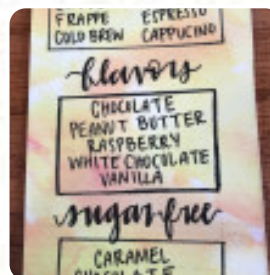 FRAPPE ESPRESSO
COLD BREW CAPPUCINO
flavors
CHOCOLATE
PEANUT BUTTER
RASPBERRY
WHITE CHOCOLATE
VANILLA
sugar-free
CARAMEL
CHOCOLATE